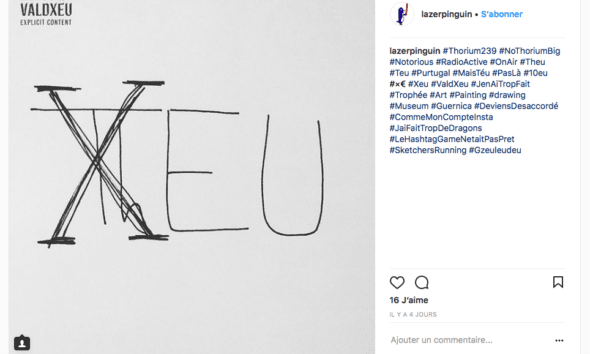 VALDXEU
EXPLICIT CONTENT
XEU
lazerpinguin • S'abonner
lazerpinguin #Thorium239 #NoThoriumBig
#Notorious #RadioActive #OnAir #Theu
#Teu #Purtugal #MaisTéu #PasLà #10eu
#×€ #Xeu #ValdXeu #JenAiTropFait
#Trophée #Art #Painting #drawing
#Museum #Guernica #DeviensDesaccordé
#CommeMonCompteInsta
#JaiFaitTropDeDragons
#LeHashtagGameNetaitPasPret
#SketchersRunning #Gzeuleudeu
16 J'aime
IL Y A 4 JOURS
Ajouter un commentaire...